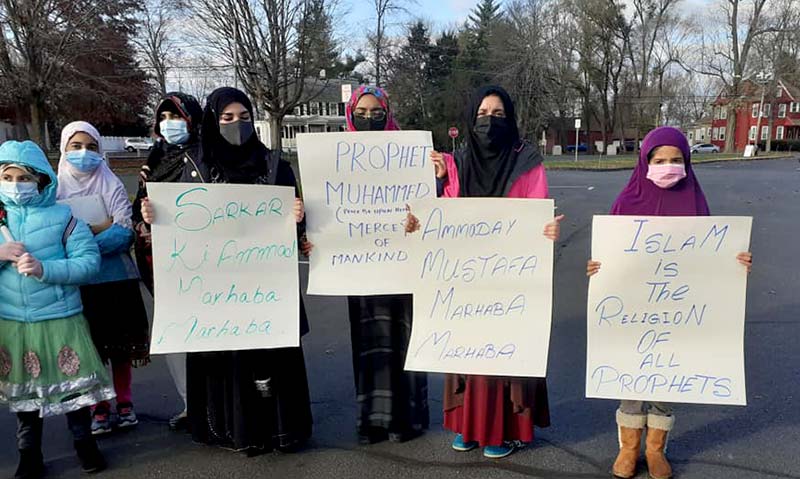 SARKAR
Ki Ammad
Marhaba
Marhaba
PROPHET
MUHAMMED
(Peace Be Upon Him)
MERCEY
OF
MANKIND
AMMADAY
MUSTAFA
MARHABA
MARHABA
ISLAM
is
The
RELIGION
OF
ALL
PROPHETS